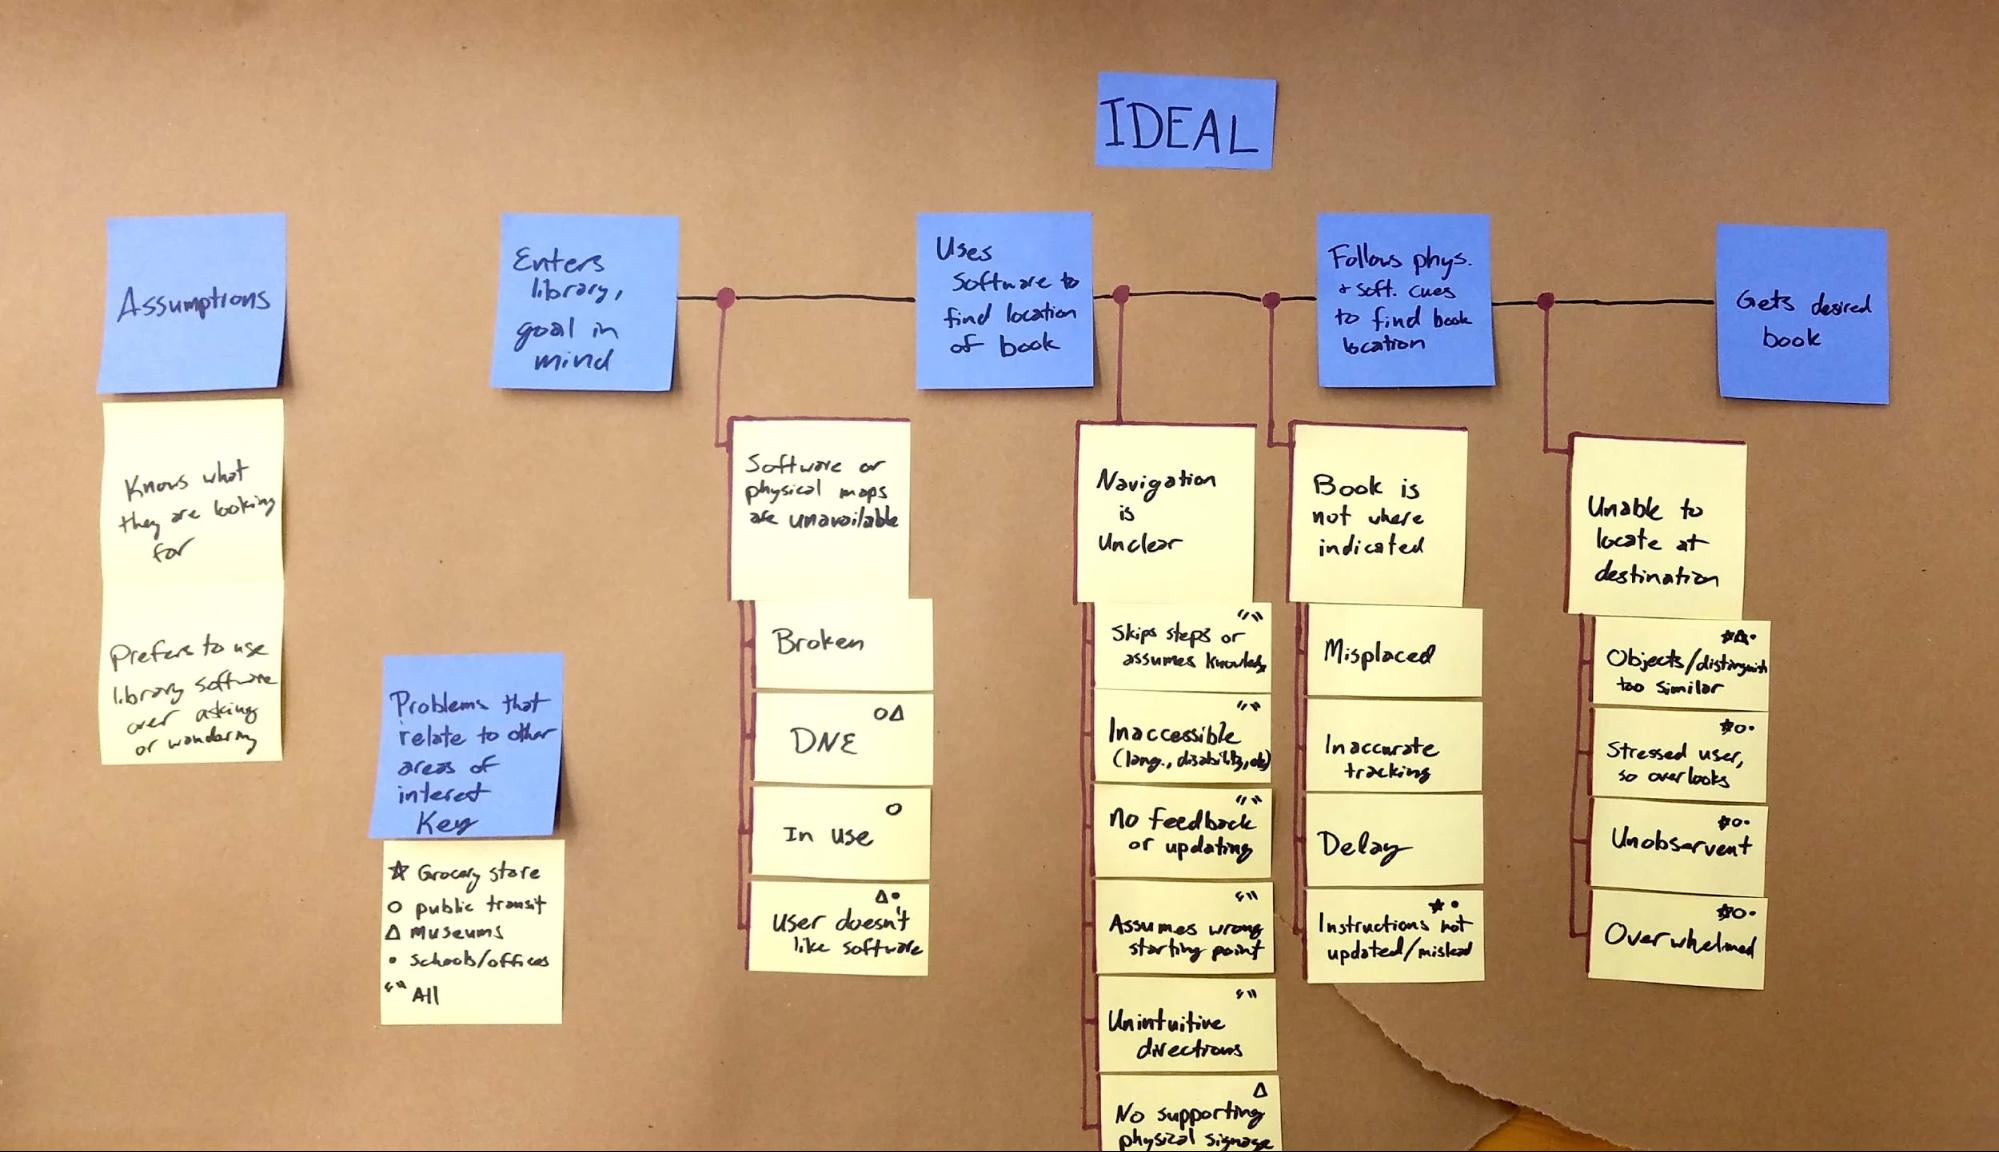 IDEAL
Assumptions
Knows what
they are looking
for
Prefers to use
library software
over asking
or wandering
Problems that
relate to other
areas of
interest
Key
☆ Grocery store
○ public transit
△ Museums
• schools/offices
“” All
Enters
library,
goal in
mind
Software or
physical maps
are unavailable
Broken
○△
DNE
○
In use
△•
User doesn't
like software
Uses
Software to
find location
of book
Navigation
is
Unclear
“”
Skips steps or
assumes knowledg
“”
Inaccessible
(lang., disability, etc)
“”
No feedback
or updating
“”
Assumes wrong
starting point
“”
Unintuitive
directions
△
No supporting
physical signage
Follows phys.
+ soft. cues
to find book
location
Book is
not where
indicated
Misplaced
Inaccurate
tracking
Delay
☆ •
Instructions not
updated/mislead
Gets desired
book
Unable to
locate at
destination
☆△•
Objects/distinguish
too similar
☆○•
Stressed user,
so overlooks
☆○•
Unobservent
☆○•
Overwhelmed